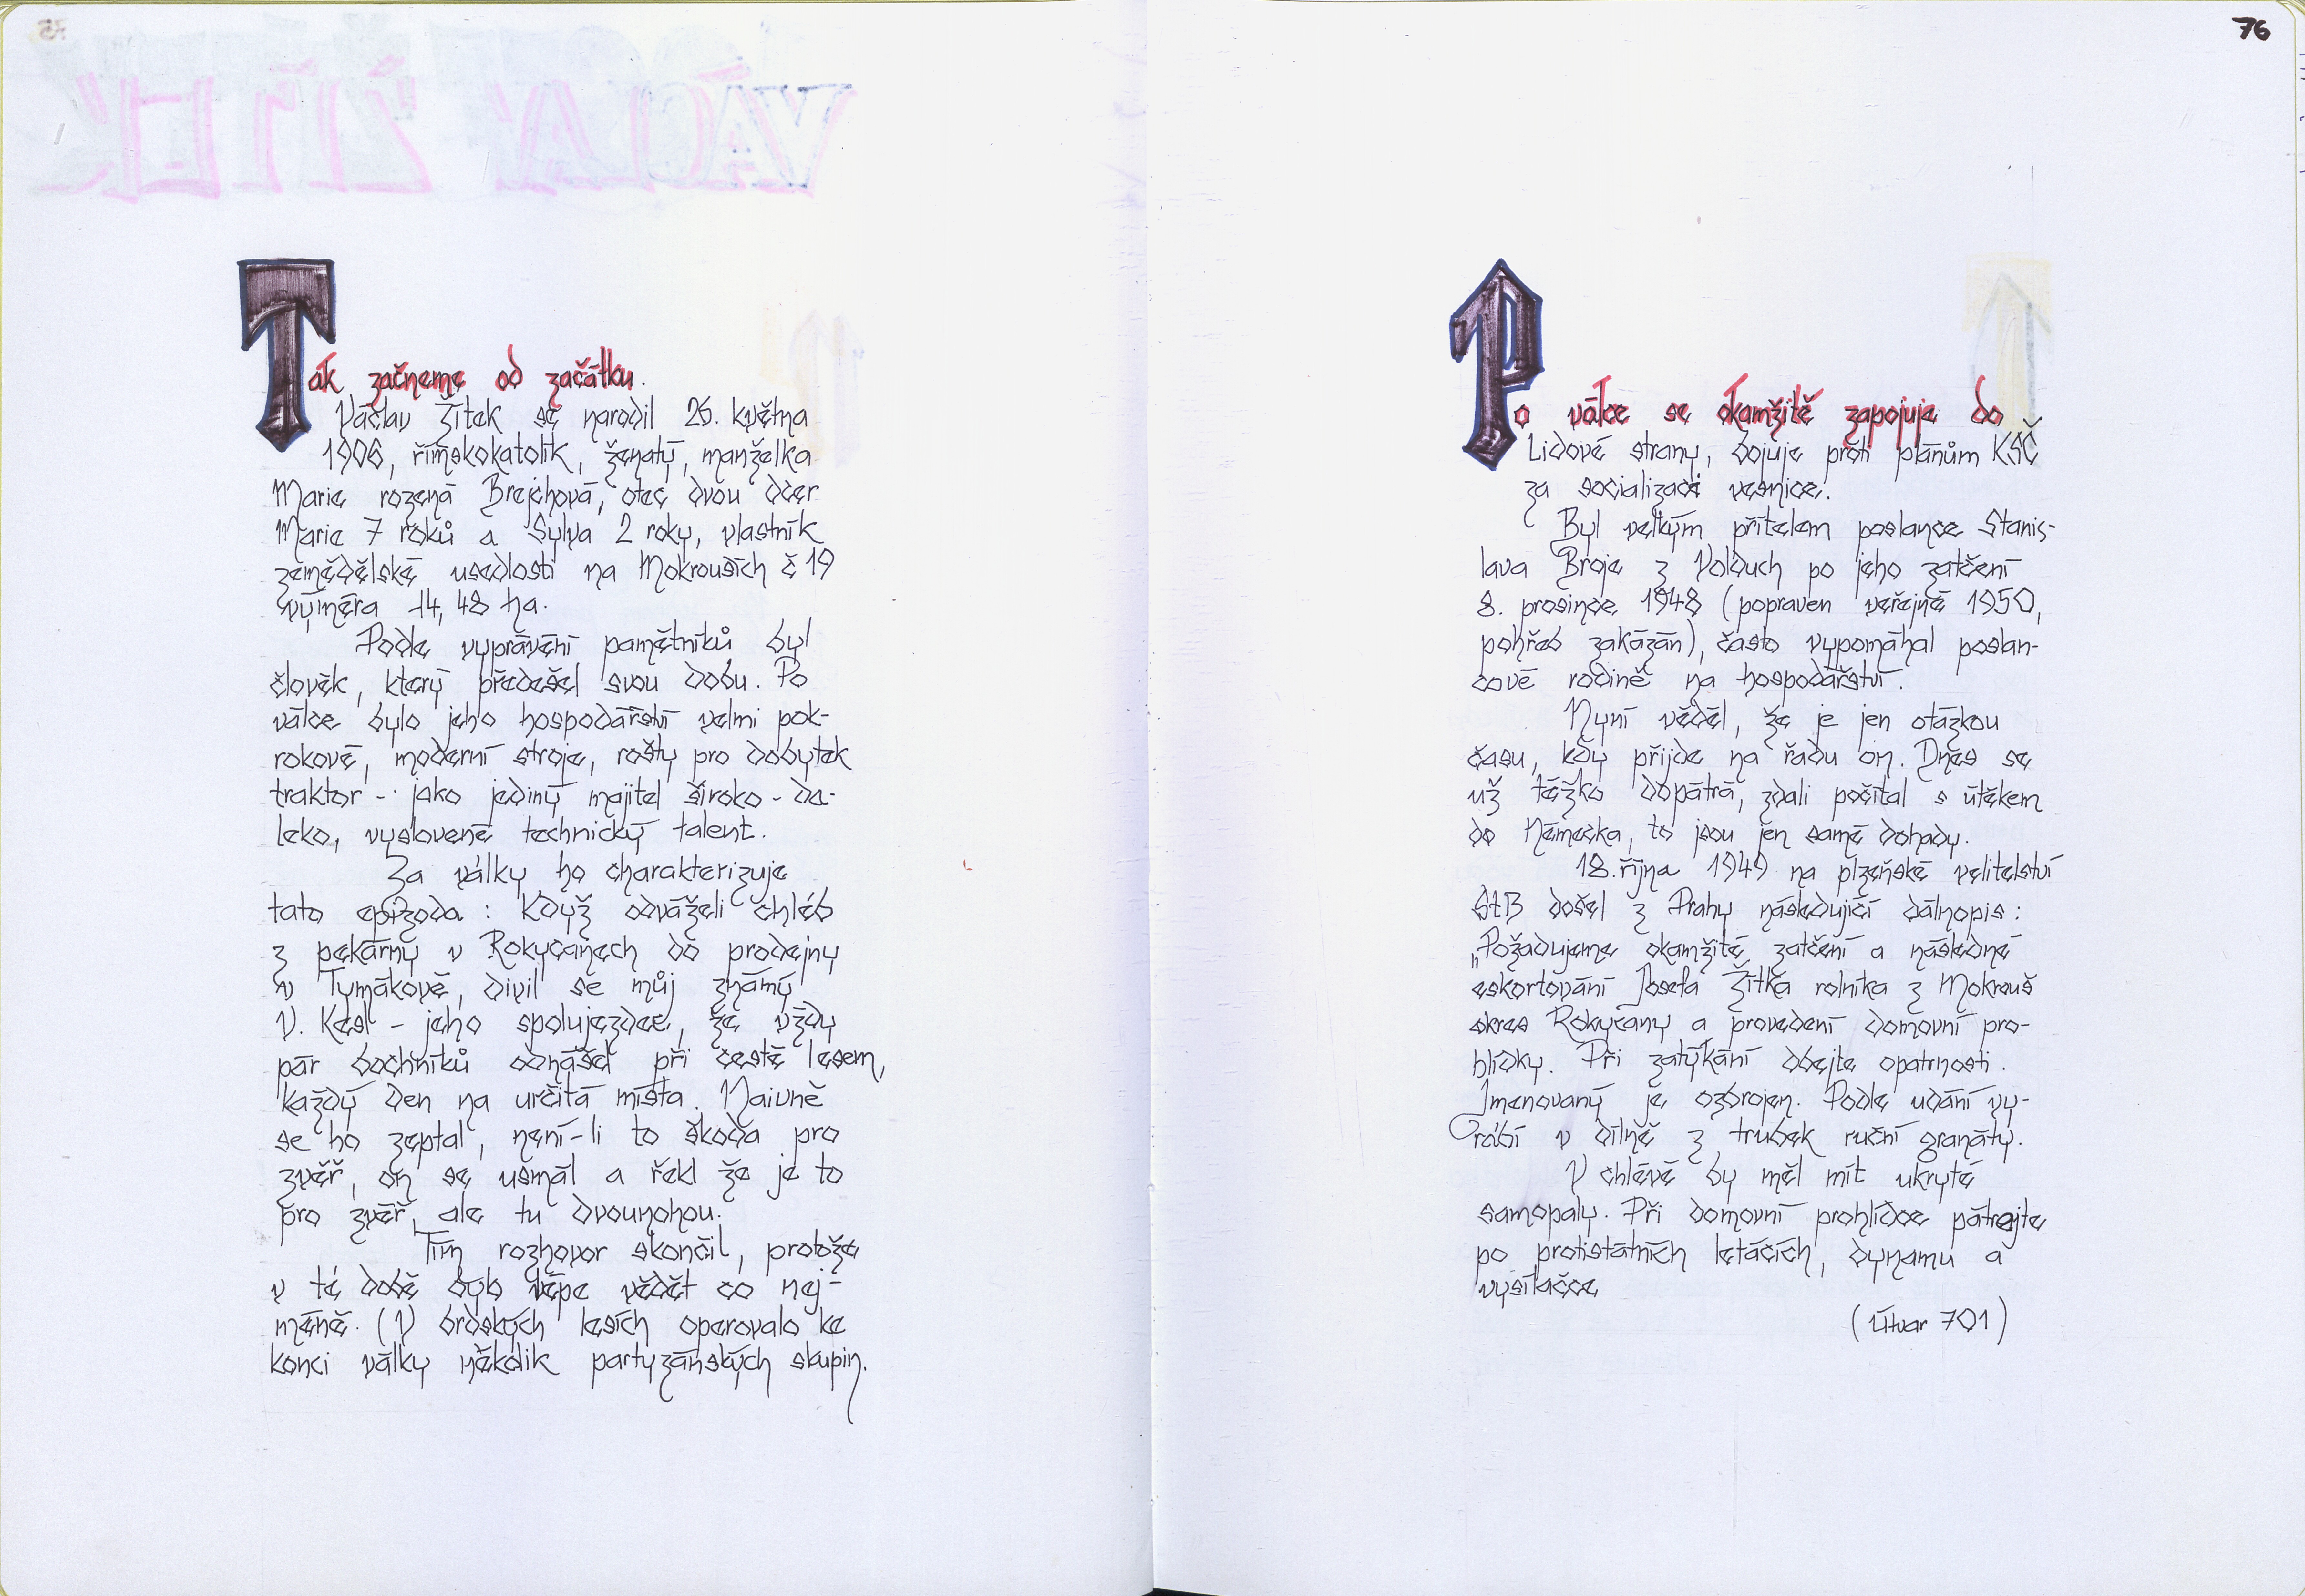 Tak začneme od začátku.
Václav Žítek se narodil 26. května
1906, římskokatolík, ženatý, manželka
Marie rozená Brejchová, otec dvou dcer
Marie 7 roků a Sylva 2 roky, vlastník
zemědělské usedlosti na Mokrouších č 19
výměra 14,48 ha.
Podle vyprávění pamětníků byl
člověk, který předešel svou dobu. Po
válce bylo jeho hospodářství velmi pok-
rokové, moderní stroje, rošty pro dobytek
traktor - jako jediný majitel široko - da-
leko, vysloveně technický talent.
Za války ho charakterizuje
tato epizoda : Když odváželi chléb
z pekárny v Rokycanech do prodejny
v Tymákově, divil se můj známý
V. Kesl - jeho spolujezdec, že vždy
pár bochníků odnášel při cestě lesem,
každý den na určitá místa. Naivně
se ho zeptal, není-li to škoda pro
zvěř, on se usmál a řekl že je to
pro zvěř, ale tu dvounohou.
Tím rozhovor skončil, protože
v té době bylo lépe vědět co nej-
méně. (V brdských lesích operovalo ke
konci války několik partyzánských skupin.
76
Po válce se okamžitě zapojuje do
Lidové strany, bojuje proti plánům KSČ
za socializaci vesnice.
Byl velkým přítelem poslance Stanis-
lava Broje z Volduch po jeho zatčení
8. prosince 1948 (popraven veřejně 1950,
pohřeb zakázán), často vypomáhal poslan-
cově rodině na hospodářství.
Nyní věděl, že je jen otázkou
času, kdy přijde na řadu on. Dnes se
už těžko dopátrá, zdali počítal s útěkem
do Německa, to jsou jen samé dohady.
18. října 1949 na plzeňské velitelství
StB došel z Prahy následující dálnopis :
„Požadujeme okamžité zatčení a následné
eskortování Josefa Žítka rolníka z Mokrouš
okres Rokycany a provedení domovní pro-
hlídky. Při zatýkání dbejte opatrnosti.
Jmenovaný je ozbrojen. Podle udání vy-
rábí v dílně z trubek ruční granáty.
V chlévě by měl mít ukryté
samopaly. Při domovní prohlídce pátrejte
po protistátních letácích, dynamu a
vysílačce
(Útvar 701)